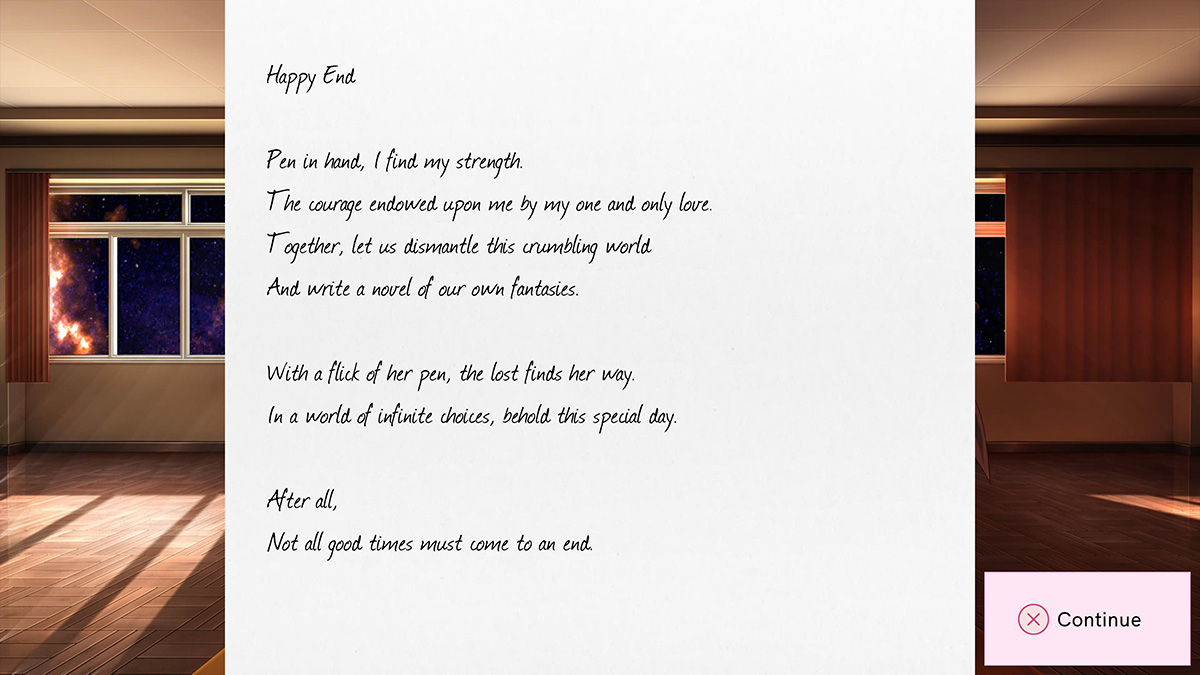 Happy End
Pen in hand, I find my strength.
The courage endowed upon me by my one and only love.
Together, let us dismantle this crumbling world
And write a novel of our own fantasies.
With a flick of her pen, the lost finds her way.
In a world of infinite choices, behold this special day.
After all,
Not all good times must come to an end.
Continue